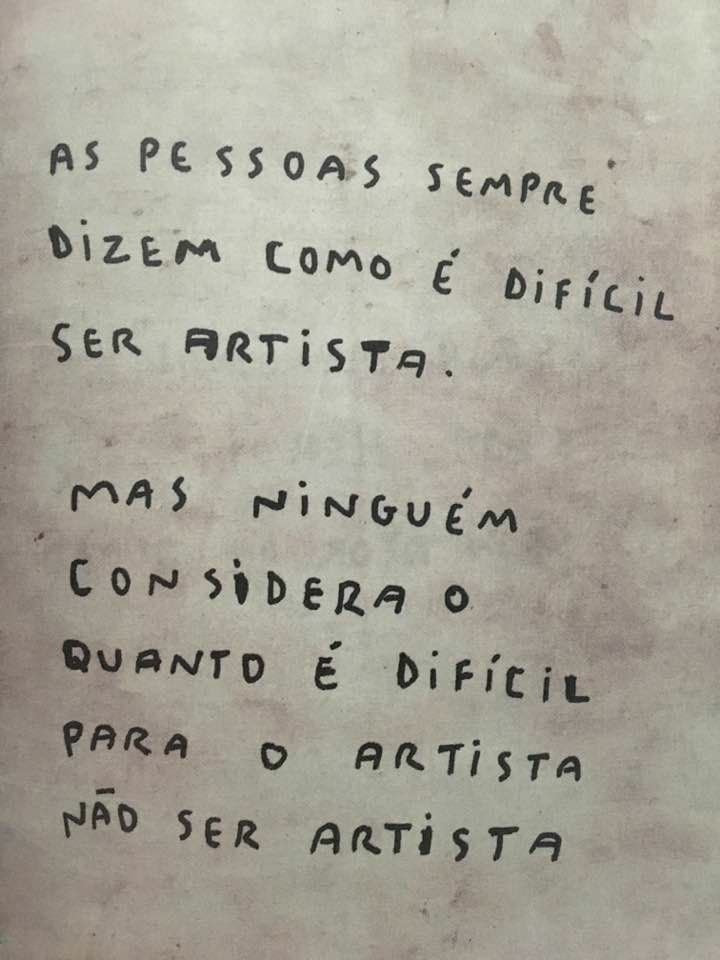 AS PESSOAS SEMPRE
DIZEM COMO É DIFÍCIL
SER ARTISTA.
MAS NINGUÉM
CONSIDERA O
QUANTO É DIFÍCIL
PARA O ARTISTA
NÃO SER ARTISTA